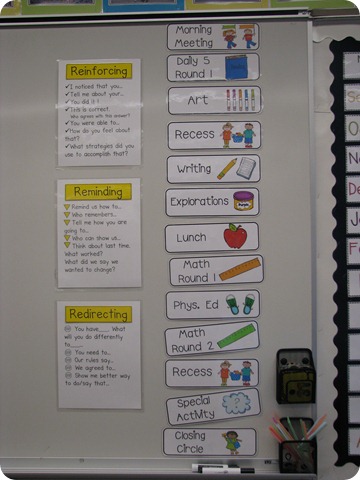 Reinforcing
I noticed that you...
Tell me about your...
You did it!
This is correct.
Who agrees with this answer?
You were able to...
How do you feel about
that?
What strategies did you
use to accomplish that?
Reminding
Remind us how to...
Who remembers...
Tell me how you are
going to...
Who can show us...
Think about last time.
What worked?
What did we say we
wanted to change?
Redirecting
You have___. What
will you do differently
to___.
You need to...
Our rules say...
We agreed to...
Show me better way
to do/say that...
Morning
Meeting
Daily 5
Round 1
Art
Recess
Writing
Explorations
Lunch
Math
Round 1
Phys. Ed
Math
Round 2
Recess
Special
Activity
Closing
Circle